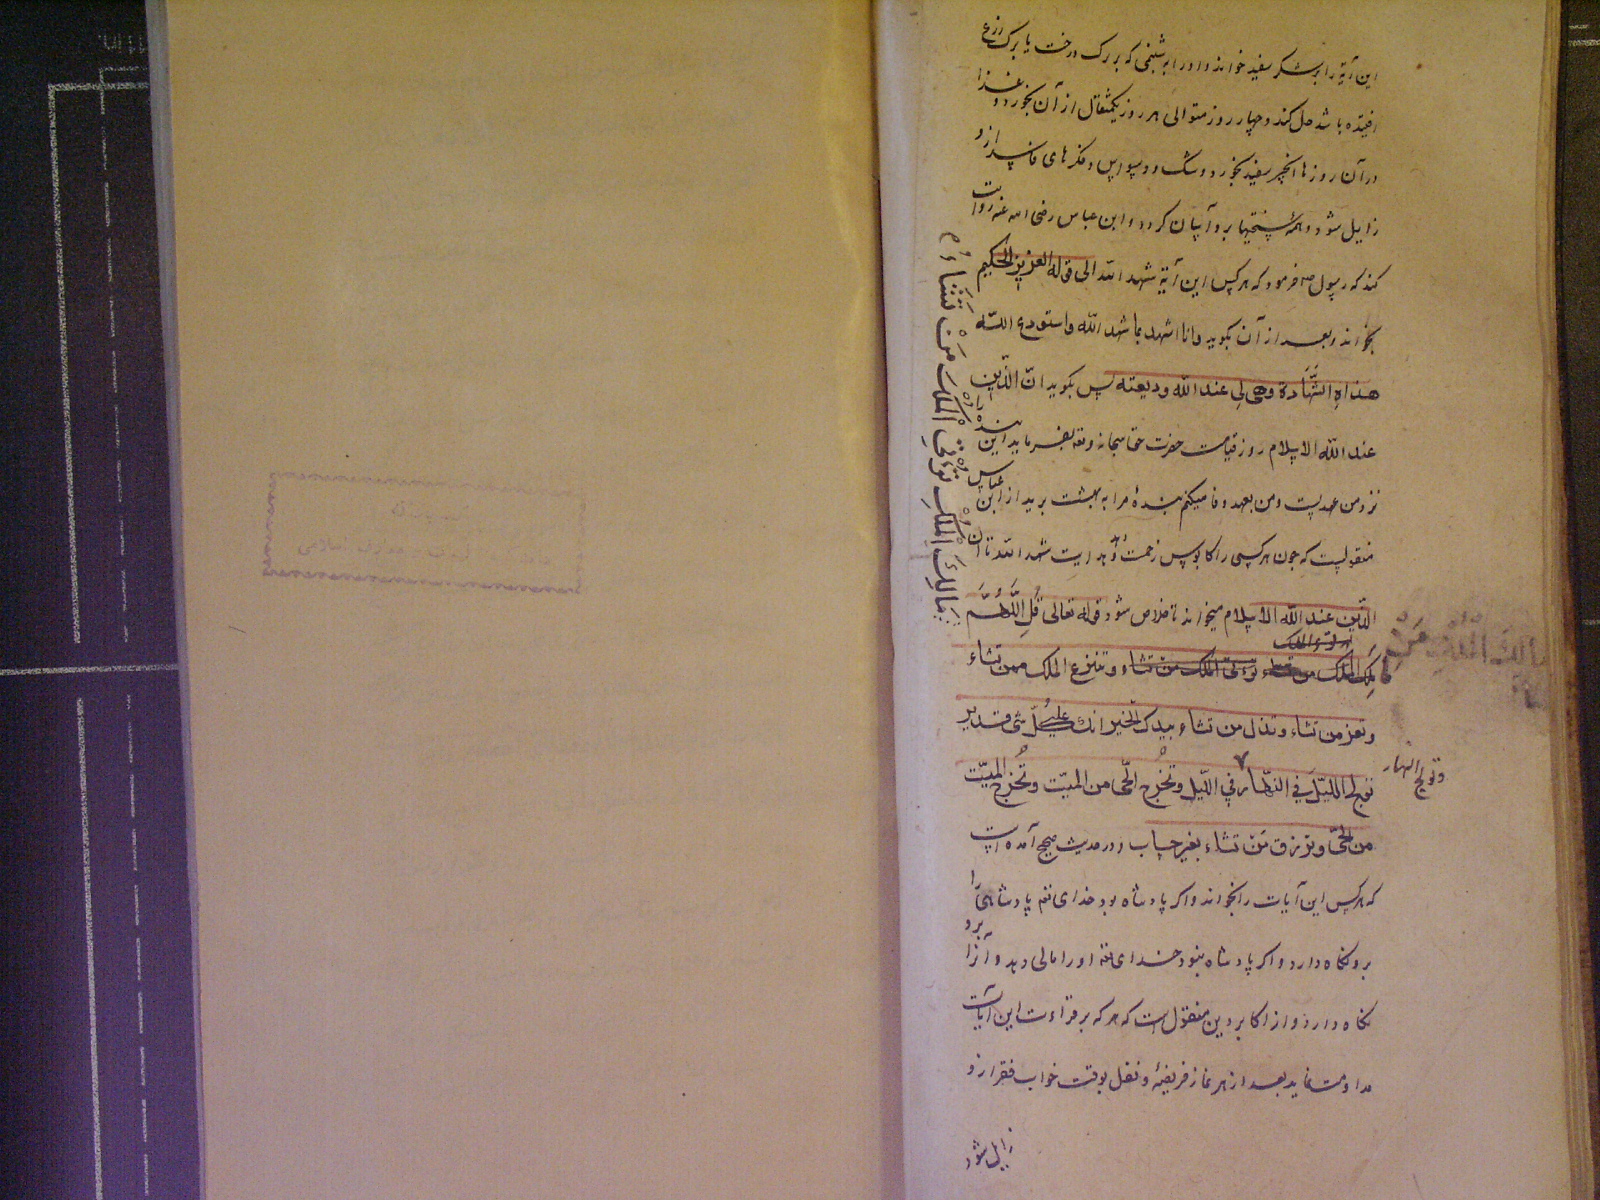 این آیة را بر شکر سفید خواند و او را بر شبنمی که بر برک درخت یا برک زرع
افتیده باشد حل کند و چهار روز متوالی هر روز یکمثقال از آن بخورد و غذا
در آن روزها انجیر سفید بخورد و شک و وسواس و فکرهای فاسد از و
زایل شود و همهٔ سختیها برو آسان کردد و ابن عباس رضی الله عنه روایت
کند که رسول ص فرمود که هر کس این آیة شهد الله الی قوله العزیز الحکیم
بخواند و بعد از آن بکوید وانا اشهد بما شهد الله واستودع الله
هذه الشَّهَادة وهی لی عند الله ودیعته پس بکوید انّ الدّین
عند الله الاسلام روز قیامت حضرت حق سبحانه وتعه بفرماید این بنده را
نزد من عهدیست و من بعهد وفا میکنم بندهٔ مرا به بهشت برید از ابن عباس
منقولست که چون هر کسی را کابوس زحمت دهد آیت شهد الله تا ان
الدّین عند الله الاسلام میخواند تا خلاص شود قوله تعالی قُلِ اللَّهُمَّ
مالِكَ الملك تؤتی الملک من تشاء وتنزع الملك ممن تشاء
وتعز من تشاء وتذل من تشاء بیدک الخیر انك علی کلّ شی قدیر
تولج اللّیلَ فی النّهار فی اللّیل وتخرج الحّی من المیّت وتُخرج المیّت
وتولج النهار
من الحیّ وترزق مَنْ تشاء بغیر حساب و در حدیث صحیح آمده است
که هر کس این آیات را بخواند و اکر پادشاه بود خدای تعه پادشاهی را
برو نکاه دارد و اکر پادشاه نبود خدای تعه او را مالی دهد و آنرا برو
نکاه دارد و از اکابر دین منقول است که هر که بر قراءت این آیات
مداومت نماید بعد از هر نماز فریضهٔ و نفل بوقت خواب فقر از و
زایل شود
مَالِكَ الْمُلْكِ تُؤْتِی الْمُلْكَ مَنْ تَشَاءُ